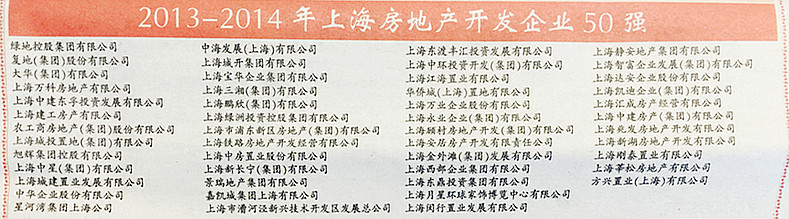 2013-2014年上海房地产开发企业50强
绿地控股集团有限公司
复地(集团)股份有限公司
大华(集团)有限公司
上海万科房地产有限公司
上海中建东孚投资发展有限公司
上海建工房产有限公司
农工商房地产(集团)股份有限公司
上海城投置地(集团)有限公司
旭辉集团控股有限公司
上海中星(集团)有限公司
上海城建置业发展有限公司
中华企业股份有限公司
星河湾集团上海公司
中海发展(上海)有限公司
上海城开集团有限公司
上海宝华企业集团有限公司
上海三湘(集团)有限公司
上海鹏欣(集团)有限公司
上海绿洲投资控股集团有限公司
上海市浦东新区房地产(集团)有限公司
上海铁路房地产开发经营有限公司
上海中房置业股份有限公司
上海新长宁(集团)有限公司
景瑞地产集团有限公司
嘉凯城集团上海有限公司
上海市漕河泾新兴技术开发区发展总公司
上海东渡丰汇投资发展有限公司
上海中环投资开发(集团)有限公司
上海江海置业有限公司
华侨城(上海)置地有限公司
上海万业企业股份有限公司
上海永业企业(集团)有限公司
上海顾村房地产开发(集团)有限公司
上海安居房产开发有限责任公司
上海金外滩(集团)发展有限公司
上海西部企业集团有限公司
上海东鼎投资集团有限公司
上海月星环球家饰博览中心有限公司
上海闵行置业发展有限公司
上海静安地产集团有限公司
上海智富企业发展(集团)有限公司
上海达安企业股份有限公司
上海凯迪企业(集团)有限公司
上海汇成房产经营有限公司
上海中建房产(集团)有限公司
上海苑发房地产开发有限公司
上海新湖房地产开发有限公司
上海刚泰置业有限公司
上海莘松房地产有限公司
方兴置业(上海)有限公司